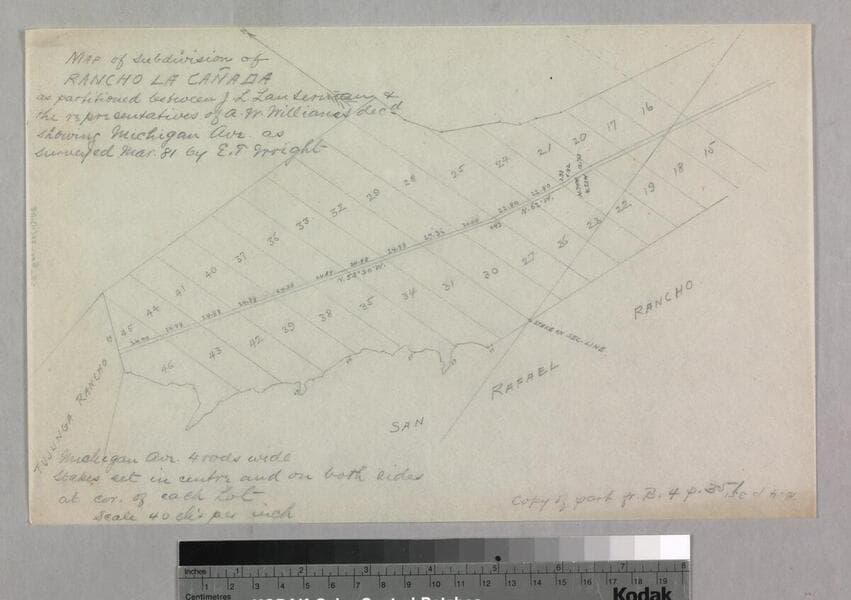 MAP of subdivision of
RANCHO LA CAÑADA
as partitioned between J L Lanterman &
the representatives of A. W. Williams dec'd
showing Michigan Ave. as
surveyed Mar. 81 by E. T. Wright
16
17
20
21
24
25
28
29
32
33
36
37
40
41
44
45
15
18
19
22
23
26
27
30
31
34
35
38
39
42
43
46
N. 62° W.
N. 52° 30' W.
STAKE IN SEC. LINE
TUJUNGA RANCHO
SAN RAFAEL RANCHO
Michigan Ave. 4 rods wide
Stakes set in centre and on both sides
at cor. of each Lot
Scale 40 ch's per inch
Copy of part fr B. 4 p. 351
Inches 1 2 3 4 5 6 7 8
Centimetres 1 2 3 4 5 6 7 8 9 10 11 12 13 14 15 16 17 18 19
KODAK Color Control Patches
Kodak